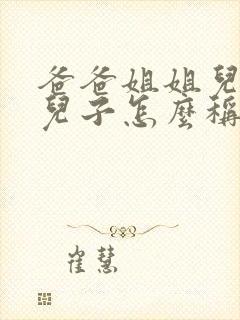 爸爸姐姐兒
兒子怎麼稱
崔慧